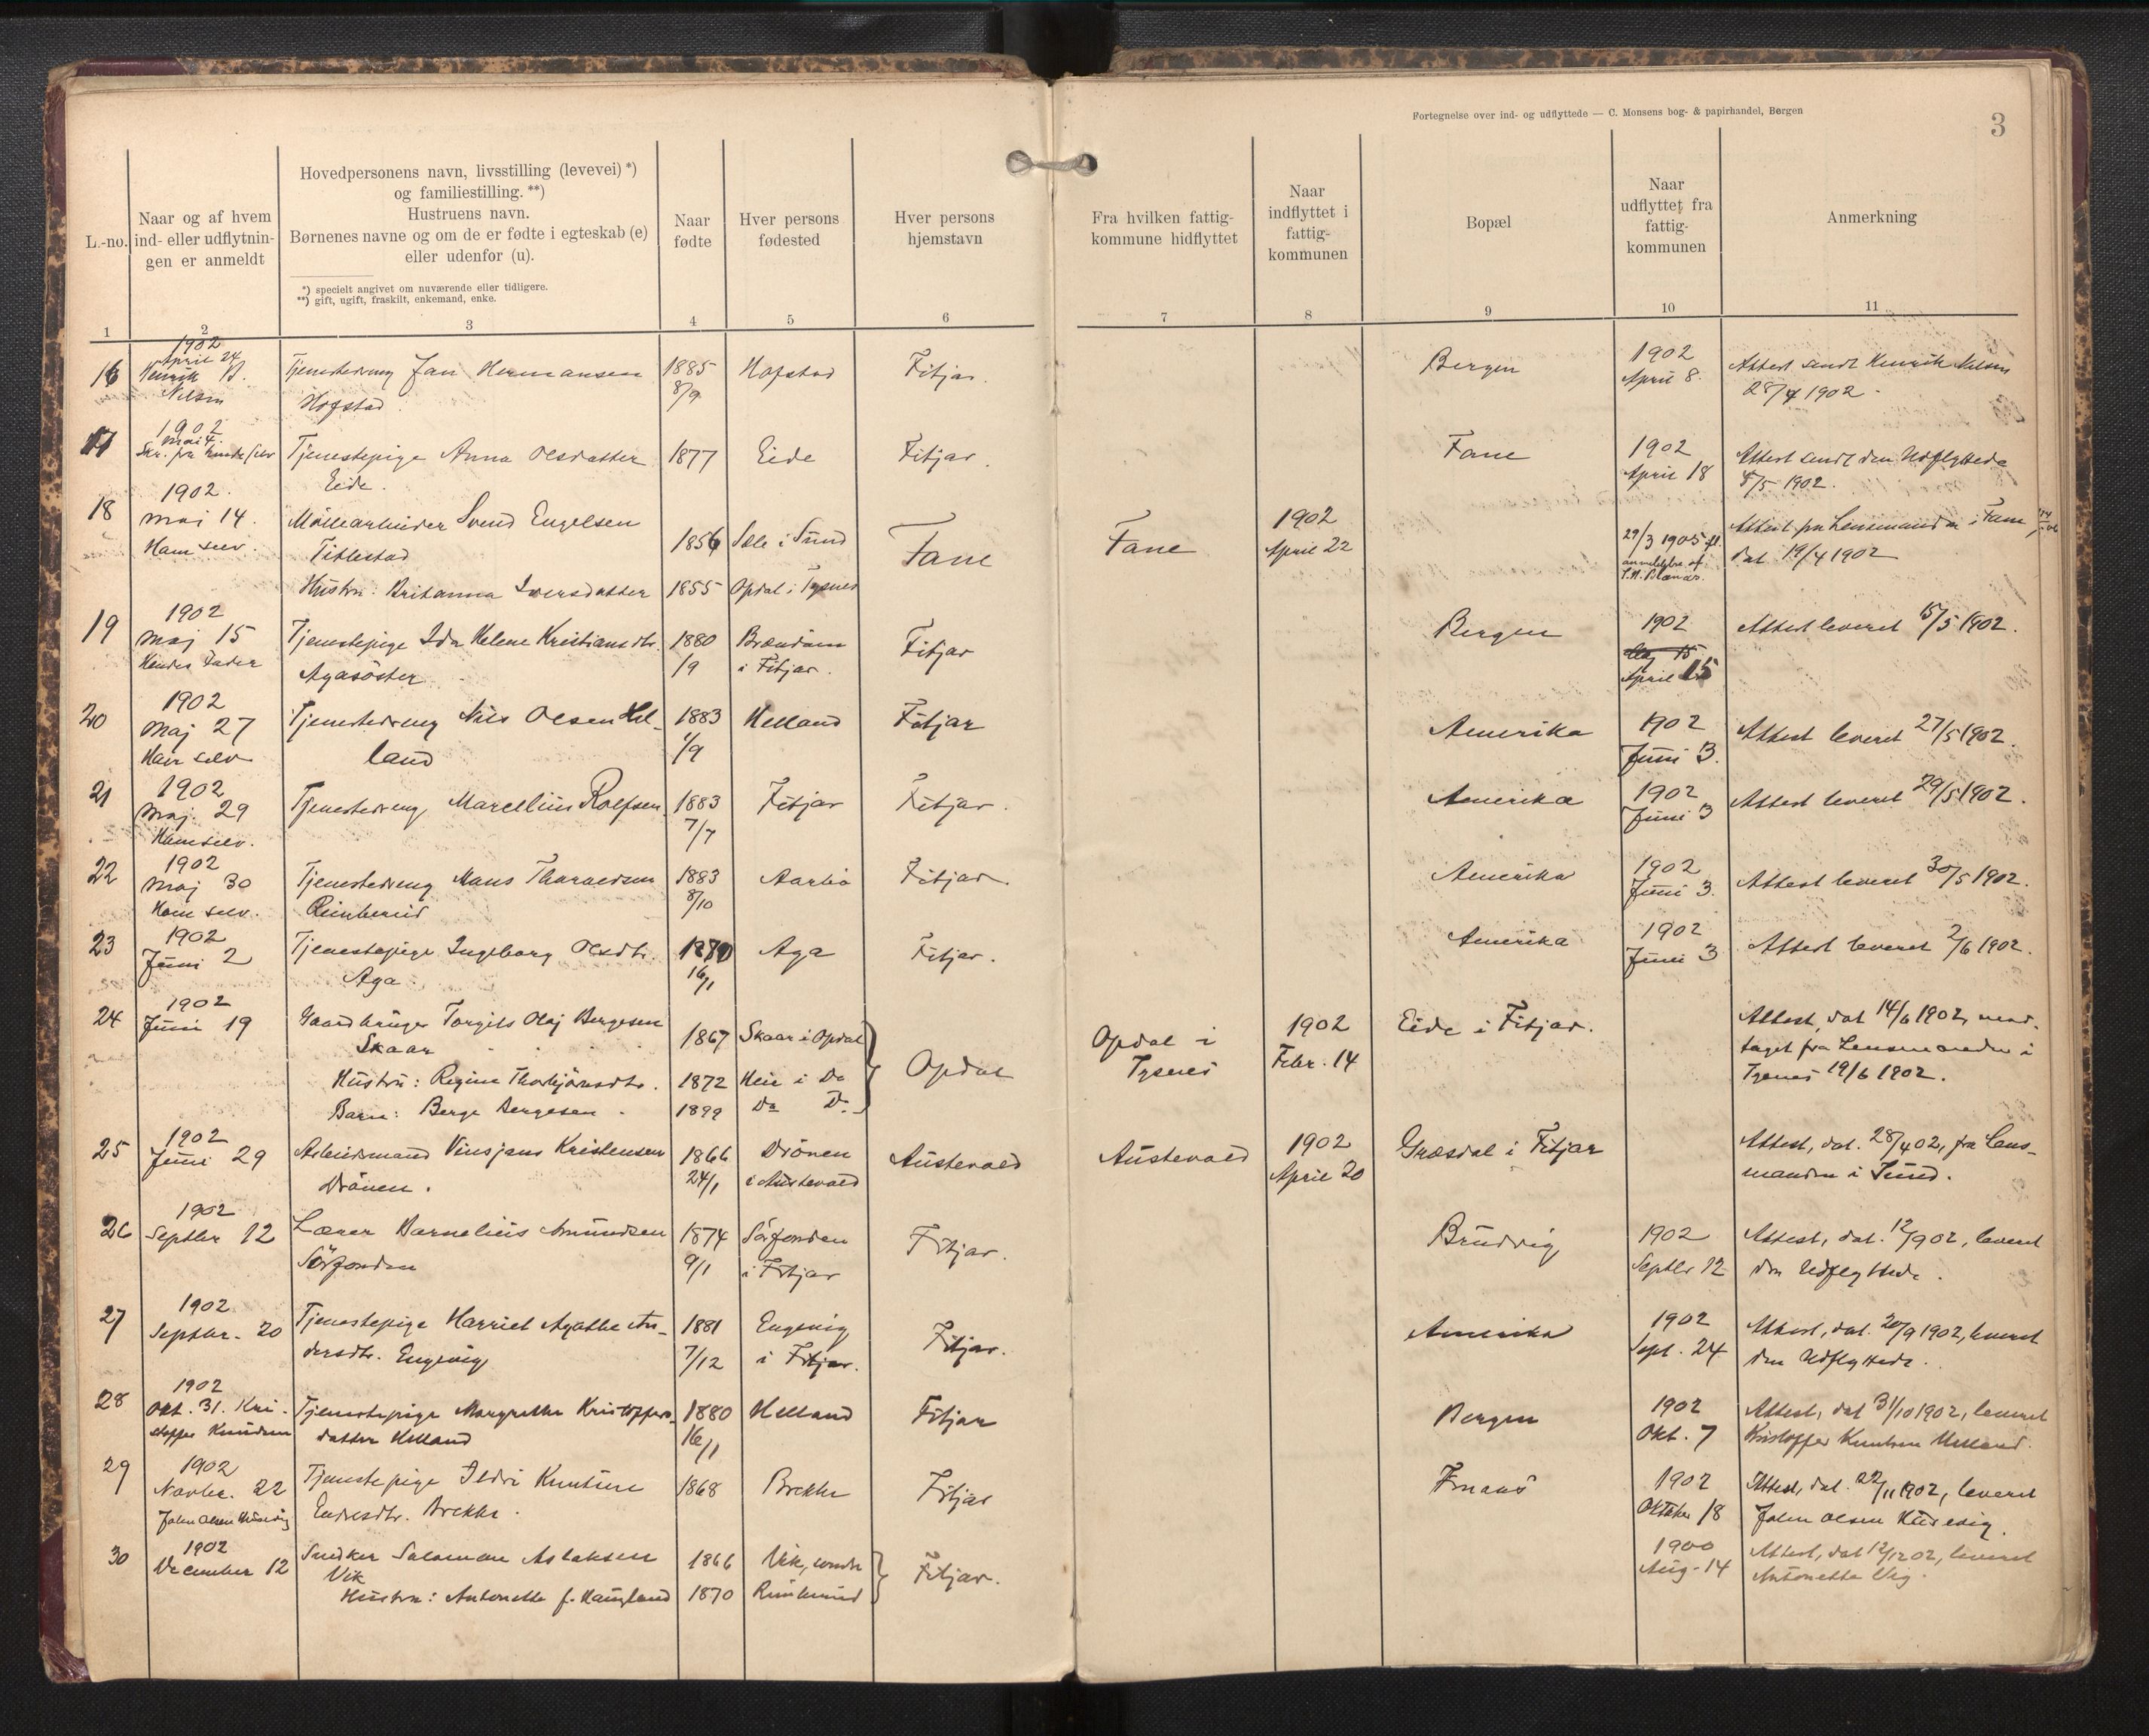 Fortegnelse over ind- og udflyttede — C. Monsens bog- & papirhandel, Bergen
3
L.-no.
Naar og af hvem
ind- eller udflytnin-
gen er anmeldt
Hovedpersonens navn, livsstilling (levevei) *)
og familiestilling. **)
Hustruens navn.
Børnenes navne og om de er fødte i egteskab (e)
eller udenfor (u).
*) specielt angivet om nuværende eller tidligere.
**) gift, ugift, fraskilt, enkemand, enke.
Naar
fødte
Hver persons
fødested
Hver persons
hjemstavn
Fra hvilken fattig-
kommune hidflyttet
Naar
indflyttet i
fattig-
kommunen
Bopæl
Naar
udflyttet fra
fattig-
kommunen
Anmerkning
1 2 3 4 5 6 7 8 9 10 11
1902
April 24
16 Henrik B. Tjenestedreng Jan Hermansen 1885 Hofstad Fitjar. Bergen 1902 Attest sendt Henrik Nilsen
Nilsen Hofstad 8/9 April 8. 28/4 1902
1902
Mai 4.
17 Skr. fra hende selv Tjenestepige Anna Olsdatter 1877 Eide Fitjar. Fane 1902 Attest sendt den Udflyttede
Eide. April 18 8/5 1902.
1902.
18 Maj 14. Svend Engelsen 1902
Ham selv. Titlestad 1856 Sele i Sund Fane Fane April 22 29/3 1905 Attest fra Lensmanden i Fane,
dat. 19/4 1902
Hustru: Britanna Iversdatter 1855 Opdal i Tysnes
1902
19 Maj 15 Tjenestepige Ida Helene Kristiansdtr. 1880 Brændøen Fitjar Bergen 1902 Attest leveret 15/5 1902.
Hendes Fader Agasöster 1/9 i Fitjar. Maj 15
April 15
1902
20 Maj 27 Tjenestedreng Nils Olsen Hel- 1883 Helland Fitjar Amerika 1902 Attest leveret 27/5 1902.
Ham selv land 1/9 Juni 3.
1902
21 Maj 29 Tjenestedreng Marcelius Rolfsen 1883 Fitjar Fitjar. Amerika 1902 Attest leveret 29/5 1902.
Ham selv. 7/7 Juni 3
1902
22 Maj 30 Tjenestedreng Mons 1883 Aarbö Fitjar. Amerika 1902 Attest leveret 30/5 1902.
Ham selv. Rimbereid 8/10 Juni 3.
1902
23 Juni 2 Tjenestepige Ingeborg Olsdtr. Aga Fitjar. Amerika 1902 Attest leveret 2/6 1902.
Aga 16/1 Juni 3
1902
24 Juni 19 Gaardbruger Torgils Olaj Bergesen 1867 Skaar i Opdal Opdal i 1902 Eide i Fitjar. Attest, dat 14/6 1902, mod-
Skaar Opdal Tysnes Febr. 14 taget fra Lensmanden i
Hustru: Regine Thorbjörnsdtr. 1872 Heie i Do Tysnes 19/6 1902.
Barn: Berge Bergesen. 1899 Do Do
1902
25 Juni 29 Arbeidsmand Vinsjans Kristensen 1866 Drönen Austevold Austevold 1902 Græsdal i Fitjar Attest, dat. 28/4 02, fra Lens-
Drönen. 24/1 i Austevold April 20 manden i Sund.
1902
26 Septbr 12 Lærer Bornelius Amundsen 1874 Sörfonden Fitjar. Brudvig 1902 Attest, dat. 12/9 02, leveret
Sörfonden 9/1 i Fitjar Septbr 12 den Udflyttede.
1902
27 Septbr. 20 Tjenestepige Harriet Agathe An- 1881 Engevig Fitjar. Amerika 1902 Attest, dat. 20/9 1902, leveret
dersdtr. Engevig 7/12 i Fitjar. Sept. 24 den Udflyttede.
1902
28 Okt. 31. Kri- Tjenestepige Margrethe Kristoffers- 1880 Helland Fitjar Bergen 1902 Attest, dat 31/10 1902, leveret
stoffer Knudsen datter Helland 16/1 Okt. 7 Kristoffer Knutsen Helland.
1902
29 Novbr. 22 Tjenestepige Ildri Knutine 1868 Brekke Fitjar 1902 Attest, dat. 22/11 1902, leveret
John Olsen Husevig Endresdtr. Brekke. Oktober 18 John Olsen Husevig.
1902
30 December 12 Snedker Salomon Aslaksen 1866 Vik, under Fitjar. 1900 Attest, dat 12/12 02, leveret
Vik Aug. 14 Antonette Vig.
Hustru: Antonette f. Haugland 1870 Rimbereid